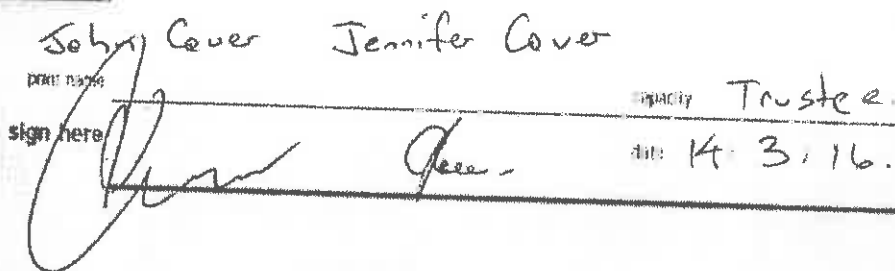 John Cover Jennifer Cover
print name
capacity Trustee.
sign here
date 14.3.16.